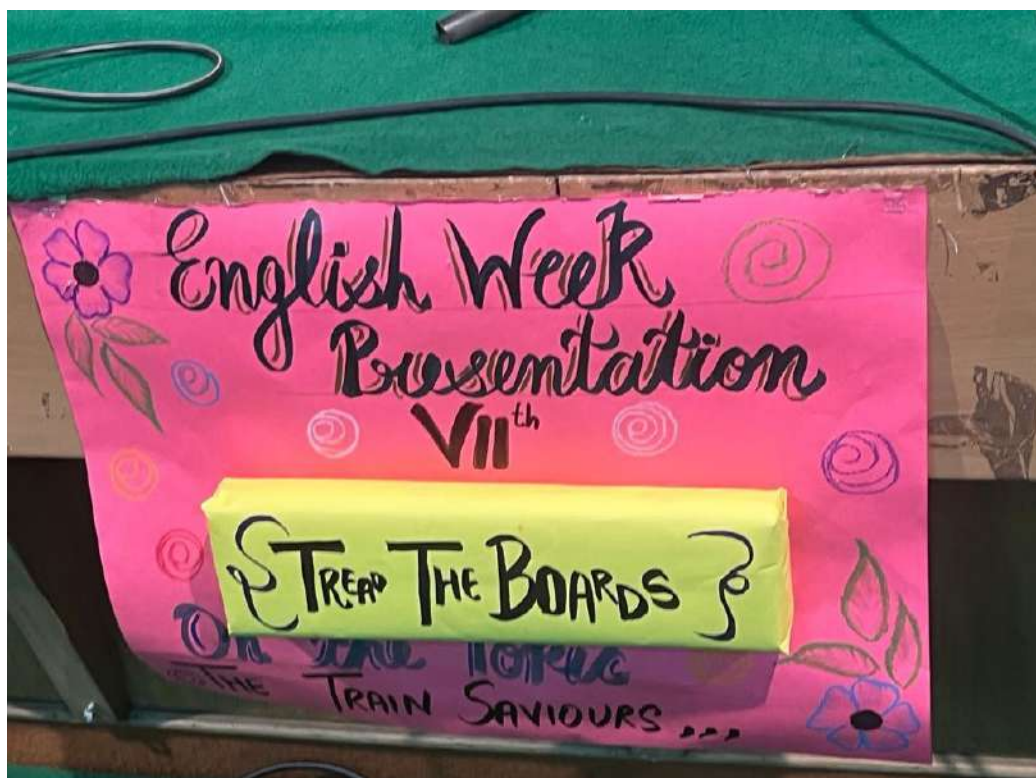 English Week
Presentation
VIIth
{ TREAD THE BOARDS }
On The Topic
THE TRAIN SAVIOURS ,,,